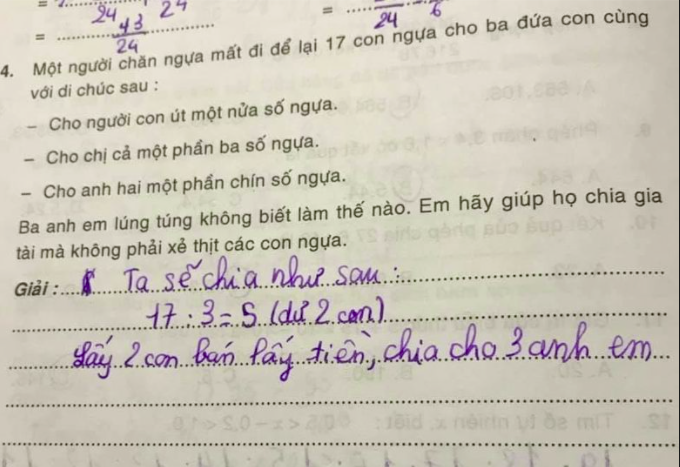 = 24 24
= 43/24
= 24 6
4. Một người chăn ngựa mất đi để lại 17 con ngựa cho ba đứa con cùng
với di chúc sau :
– Cho người con út một nửa số ngựa.
– Cho chị cả một phần ba số ngựa.
– Cho anh hai một phần chín số ngựa.
Ba anh em lúng túng không biết làm thế nào. Em hãy giúp họ chia gia
tài mà không phải xẻ thịt các con ngựa.
Giải : Ta sẽ chia như sau :
17 : 3 = 5 (dư 2 con)
Lấy 2 con bán lấy tiền, chia cho 3 anh em